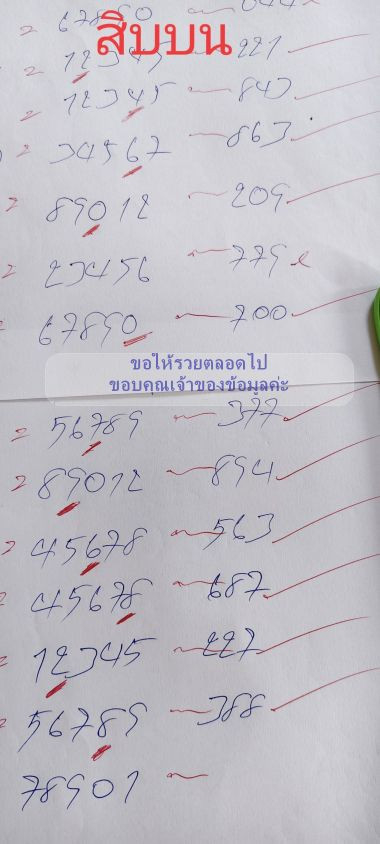 = 67890 ~ 044 x
สิบบน
= 12345 ~ 221
= 12345 ~ 843
= 34567 ~ 863
= 89012 ~ 209
= 23456 ~ 779 x
= 67890 ~ 700
ขอให้รวยตลอดไป
ขอบคุณเจ้าของข้อมูลค่ะ
= 56789 ~ 377
= 89012 ~ 894
= 45678 ~ 563
= 45678 ~ 687
= 12345 ~ 227
= 56789 ~ 388
78901 ~